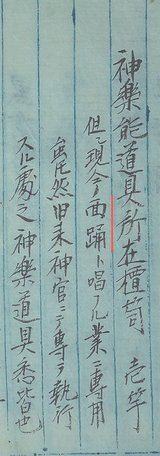 神樂能道具所在檀笥 壱竿
但現今ノ面踊ト唱フル業ニ專用
然旧来神官ニテ專ラ執行
スル處之神樂道具悉皆也